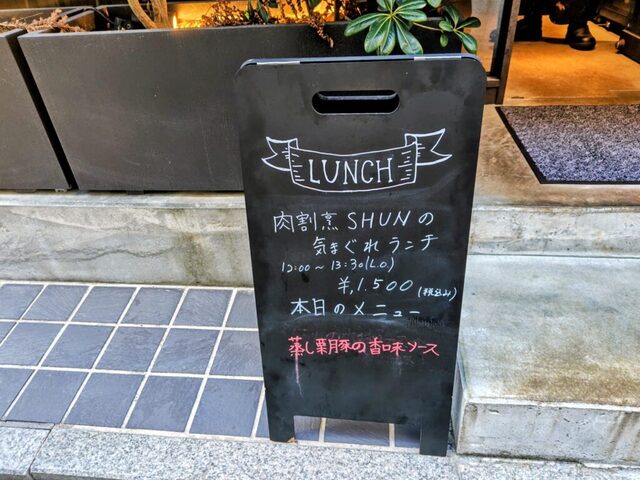 LUNCH
肉割烹 SHUNの
気まぐれランチ
12:00～13:30(L.O.)
¥,1.500(税込み)
本日のメニュー
蒸し栗豚の香味ソース